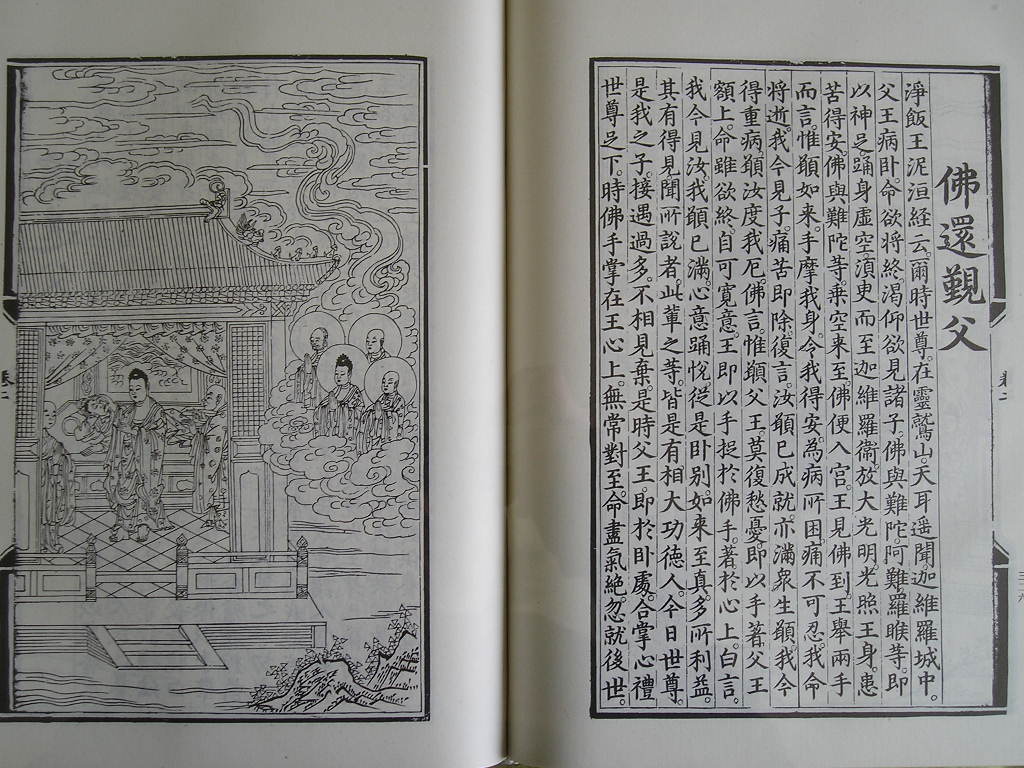 佛還覲父
淨飯王泥洹経云。爾時世尊。在靈鷲山。天耳遥聞。迦維羅城中。
父王病卧。命欲將終。渴仰欲見諸子。佛與難陀。阿難。羅睺等。即
以神足踊身虛空。須臾而至迦維羅衛。放大光明。光照王身。患
苦得安。佛與難陀等。乘空来至。佛便入宫。王見佛到。王舉兩手
而言。惟願如来。手摩我身。令我得安。為病所困。痛不可忍。我命
將逝。我今見子。痛苦即除。復言。汝願已成就。亦滿衆生願。我今
得重病。願汝度我厄。佛言。惟願父王。莫復愁憂。即以手著父王
額上。命雖欲終。自可寛意。王即以手捉於佛手。著於心上。白言。
我今見汝。我願已滿。心意踊恱。從是卧别。如来至真。多所利益。
其有得見聞所說者。此輩之等。皆是有相大功德人。今日世尊。
是我之子。接遇過多。不相見棄。是時父王即於卧處。合掌心禮
世尊足下。時佛手掌在王心上。無常對至。命盡氣絶。忽就後世。
卷二